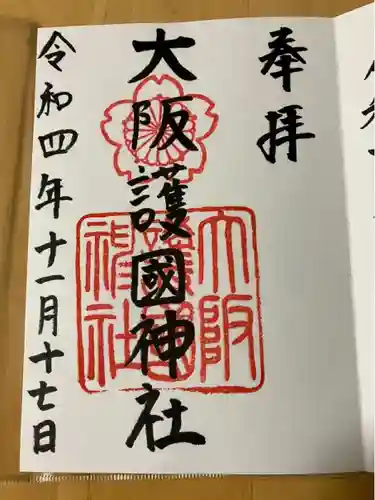 奉拝
大阪護國神社
大阪
護國
神社
令和四年十一月十七日